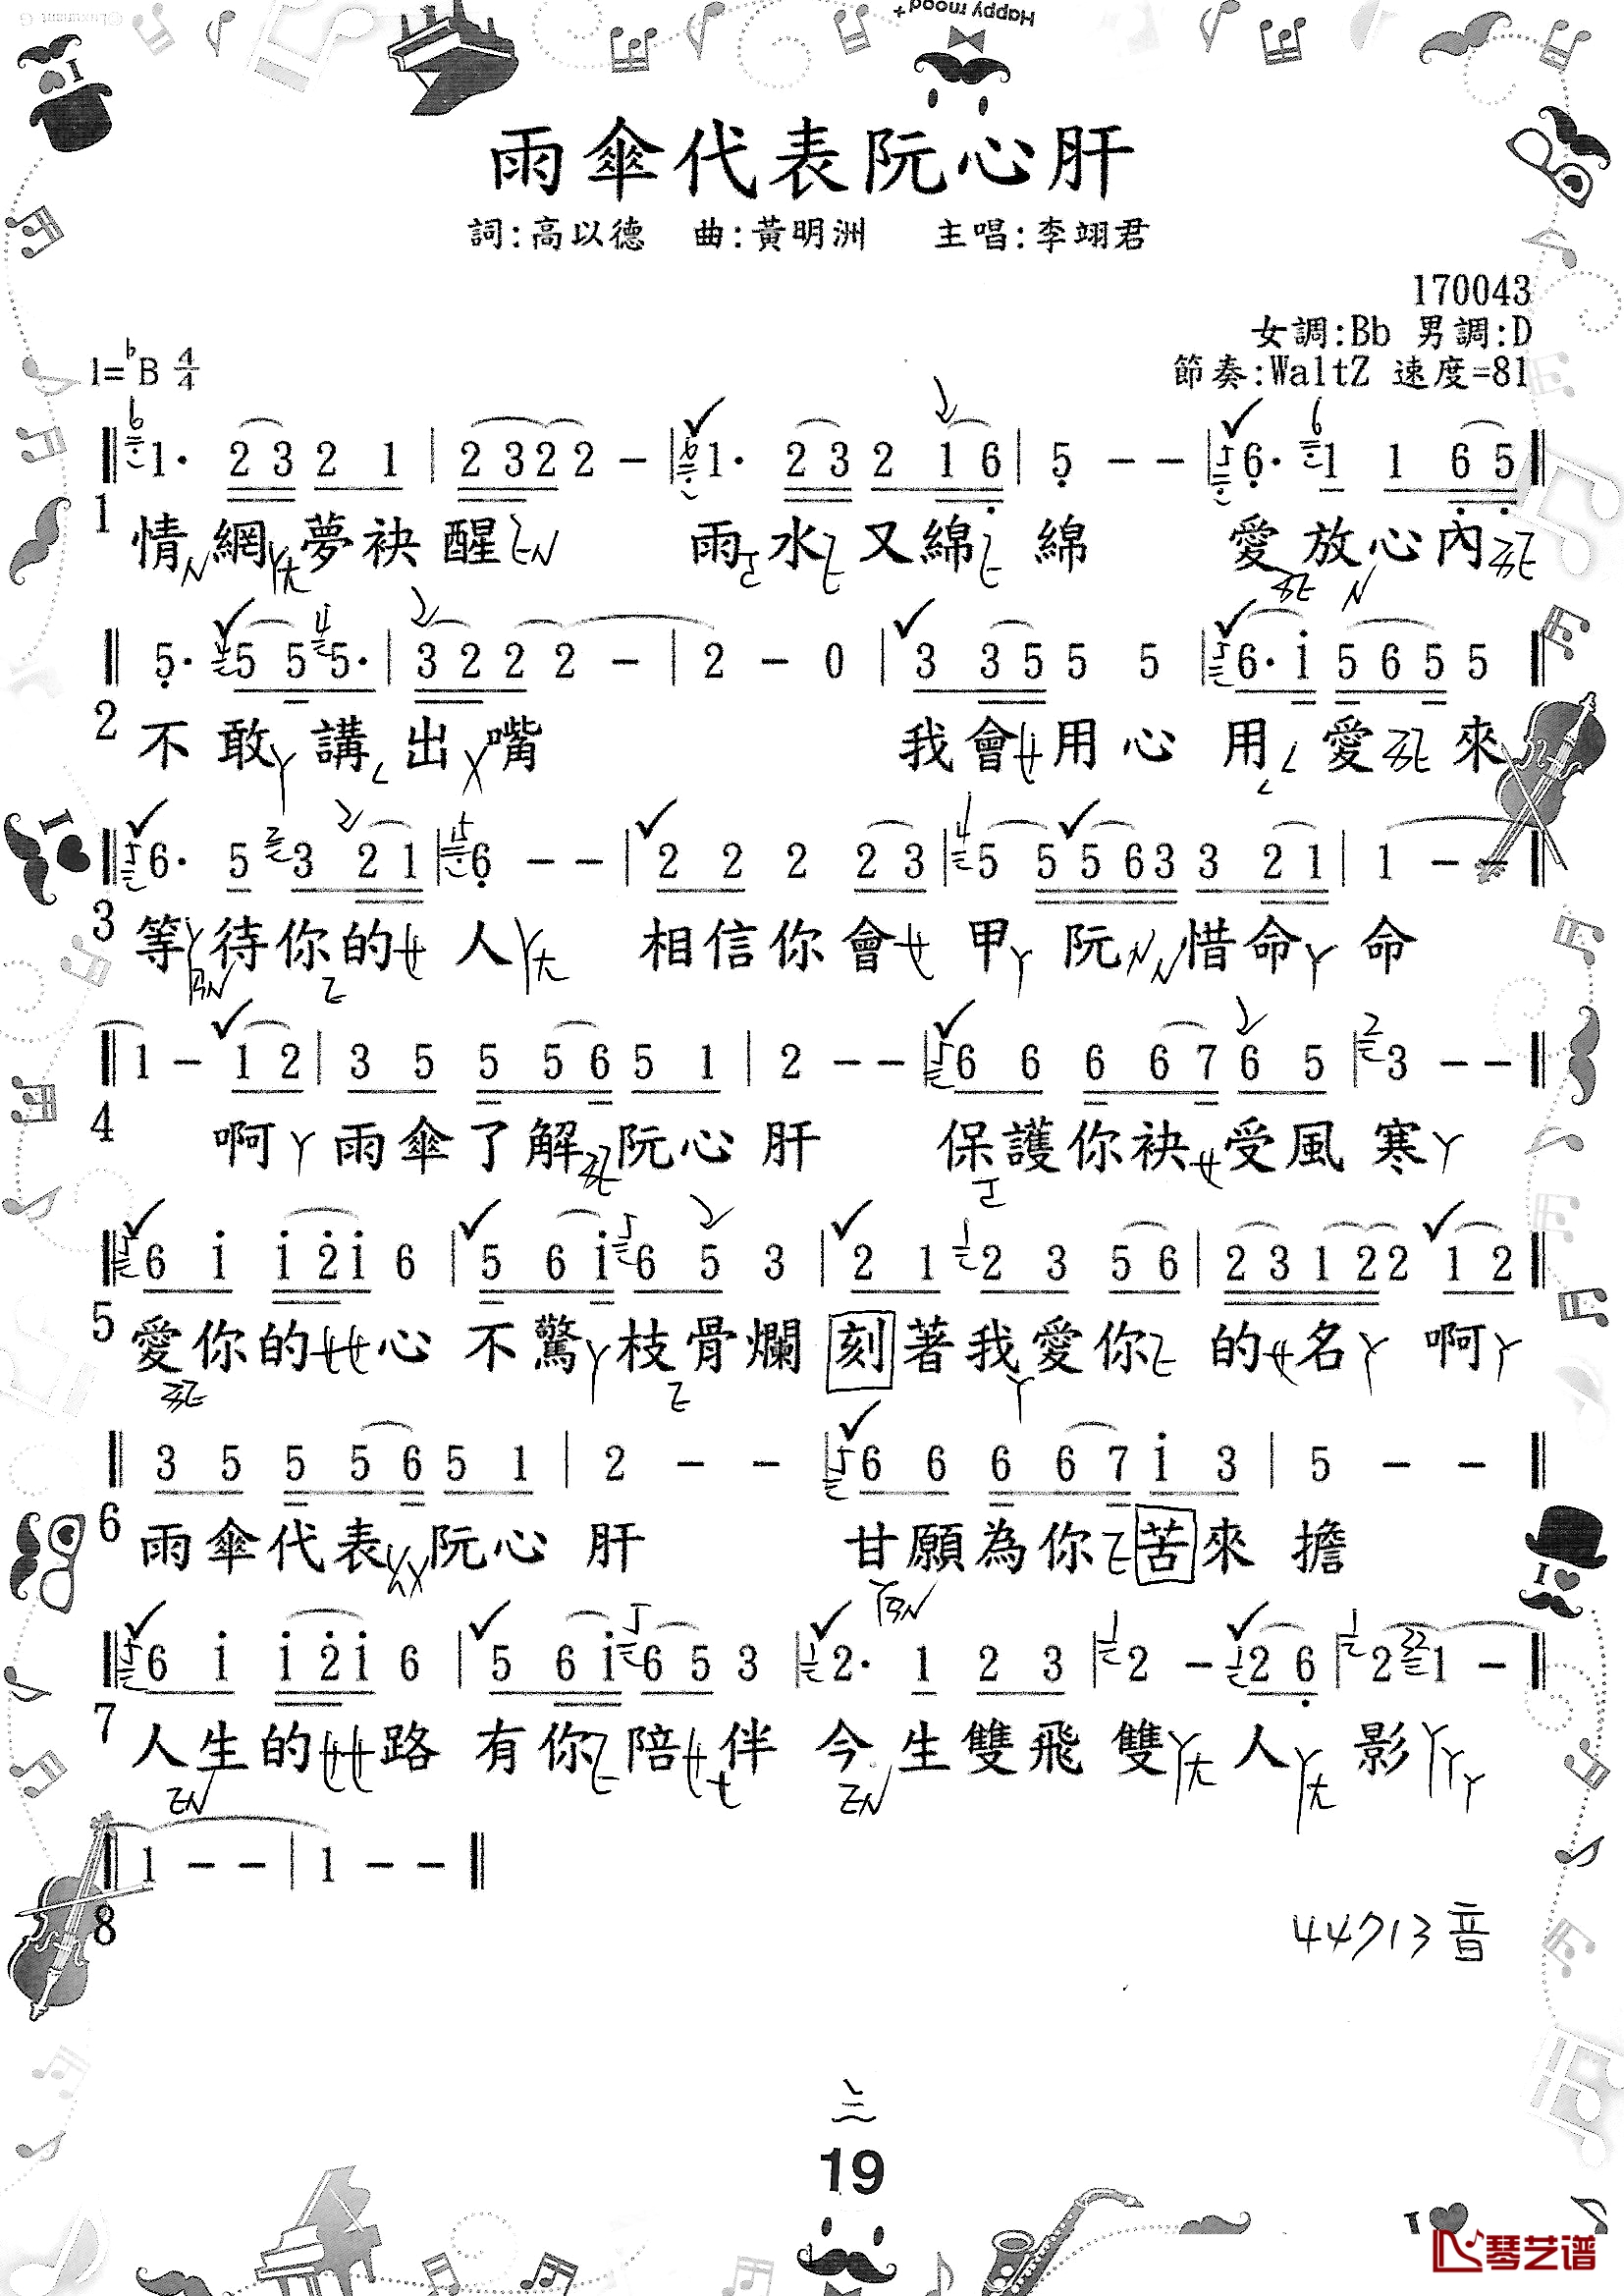 Happy mood+
雨傘代表阮心肝
詞:高以德 曲:黃明洲 主唱:李翊君
170043
女調:Bb 男調:D
節奏:WaltZ 速度=81
1=♭B 4/4
1· 2 3 2 1 | 2 3 2 2 - | 1· 2 3 2 1 6 | 5 - - | 6· 1 1 6 5
1 情網夢袂醒 雨水又綿綿 愛放心內
5· 5 5 5· | 3 2 2 2 - | 2 - 0 | 3 3 5 5 5 | 6· i 5 6 5 5
2 不敢講出嘴 我會用心用愛來
6· 5 3 2 1 | 6 - - | 2 2 2 2 3 | 5 5 5 6 3 3 2 1 | 1 - -
3 等待你的人 相信你會甲阮惜命命
1 - 1 2 | 3 5 5 5 6 5 1 | 2 - - | 6 6 6 6 7 6 5 | 3 - -
4 啊雨傘了解阮心肝 保護你袂受風寒
6 i i 2 i 6 | 5 6 i 6 5 3 | 2 1 2 3 5 6 | 2 3 1 2 2 1 2
5 愛你的心不驚枝骨爛刻著我愛你的名啊
3 5 5 5 6 5 1 | 2 - - | 6 6 6 6 7 i 3 | 5 - -
6 雨傘代表阮心肝 甘願為你苦來擔
6 i i 2 i 6 | 5 6 i 6 5 3 | 2· 1 2 3 | 2 - 2 6 | 2 1 -
7 人生的路有你陪伴今生雙飛雙人影
1 - - | 1 - -
8
44713音
19
琴艺谱